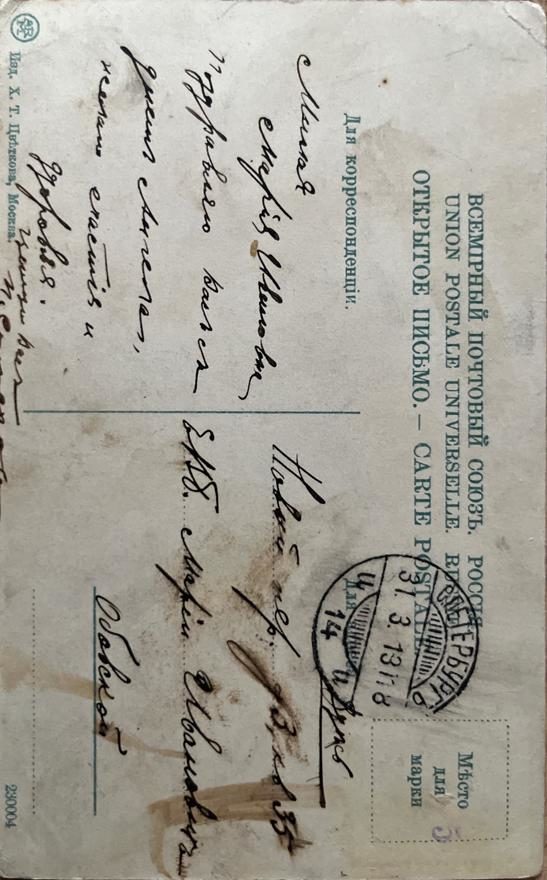 ВСЕМІРНЫЙ ПОЧТОВЫЙ СОЮЗЪ. РОССІЯ
UNION POSTALE UNIVERSELLE.
ОТКРЫТОЕ ПИСЬМО. — CARTE POSTALE
Мѣсто
для
марки
Для корреспонденціи.
Для
ПЕТЕРБУРГЪ
31 3 13
14
Милая
Марія Ивановна,
Поздравляю васъ съ
днемъ Ангела,
желаю счастія и
здоровья.
Новый пер.
ЕВБ. Маріи Ивановнѣ
Изд. Х. Т. Цвѣткова, Москва.
230004